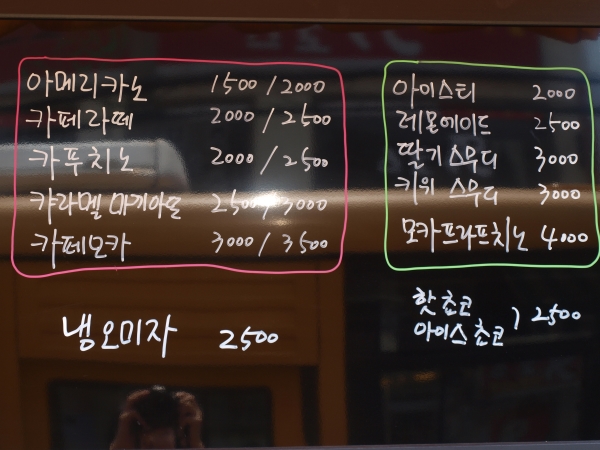 아메리카노 1500 / 2000
카페라떼 2000 / 2500
카푸치노 2000 / 2500
캬라멜 마끼아또 2500 / 3000
카페모카 3000 / 3500
냉오미자 2500
아이스티 2000
레몬에이드 2500
딸기 스무디 3000
키위 스무디 3000
모카프라프치노 4000
핫초코
아이스초코 ) 2500